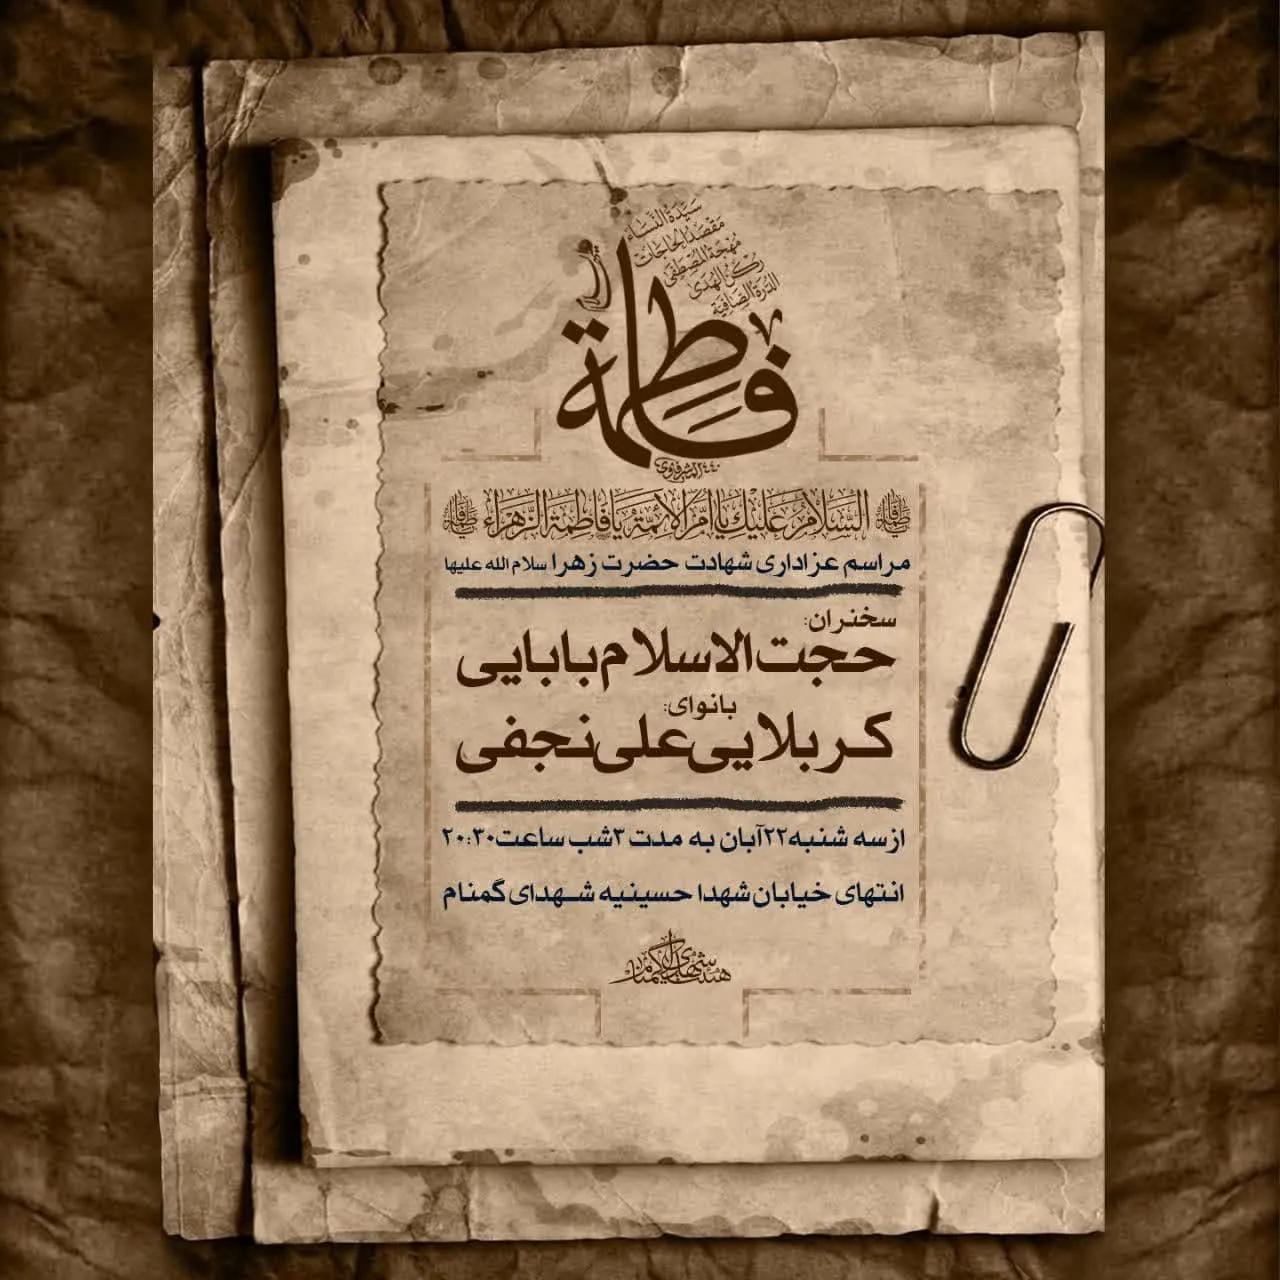 سَيِّدَةُ النِّسَاءِ
مَقْصَدُ الحَاجَات
مُهْجَةُ المُصْطَفَى
رُكْنُ الهُدَى
الدُّرَةُ الصَّافِيَة
فاطمة
السَّلامُ عَلَيْكِ يا اُمَّ الاَئِمَّةِ يا فاطِمَةَ الزَّهْراء
مراسم عزاداری شهادت حضرت زهرا سلام الله علیها
سخنران:
حجت الاسلام بابایی
بانوای:
کربلایی علی نجفی
از سه شنبه ۲۲ آبان به مدت ۳ شب ساعت ۲۰:۳۰
انتهای خیابان شهدا حسینیه شهدای گمنام
هیئت شهدای گمنام